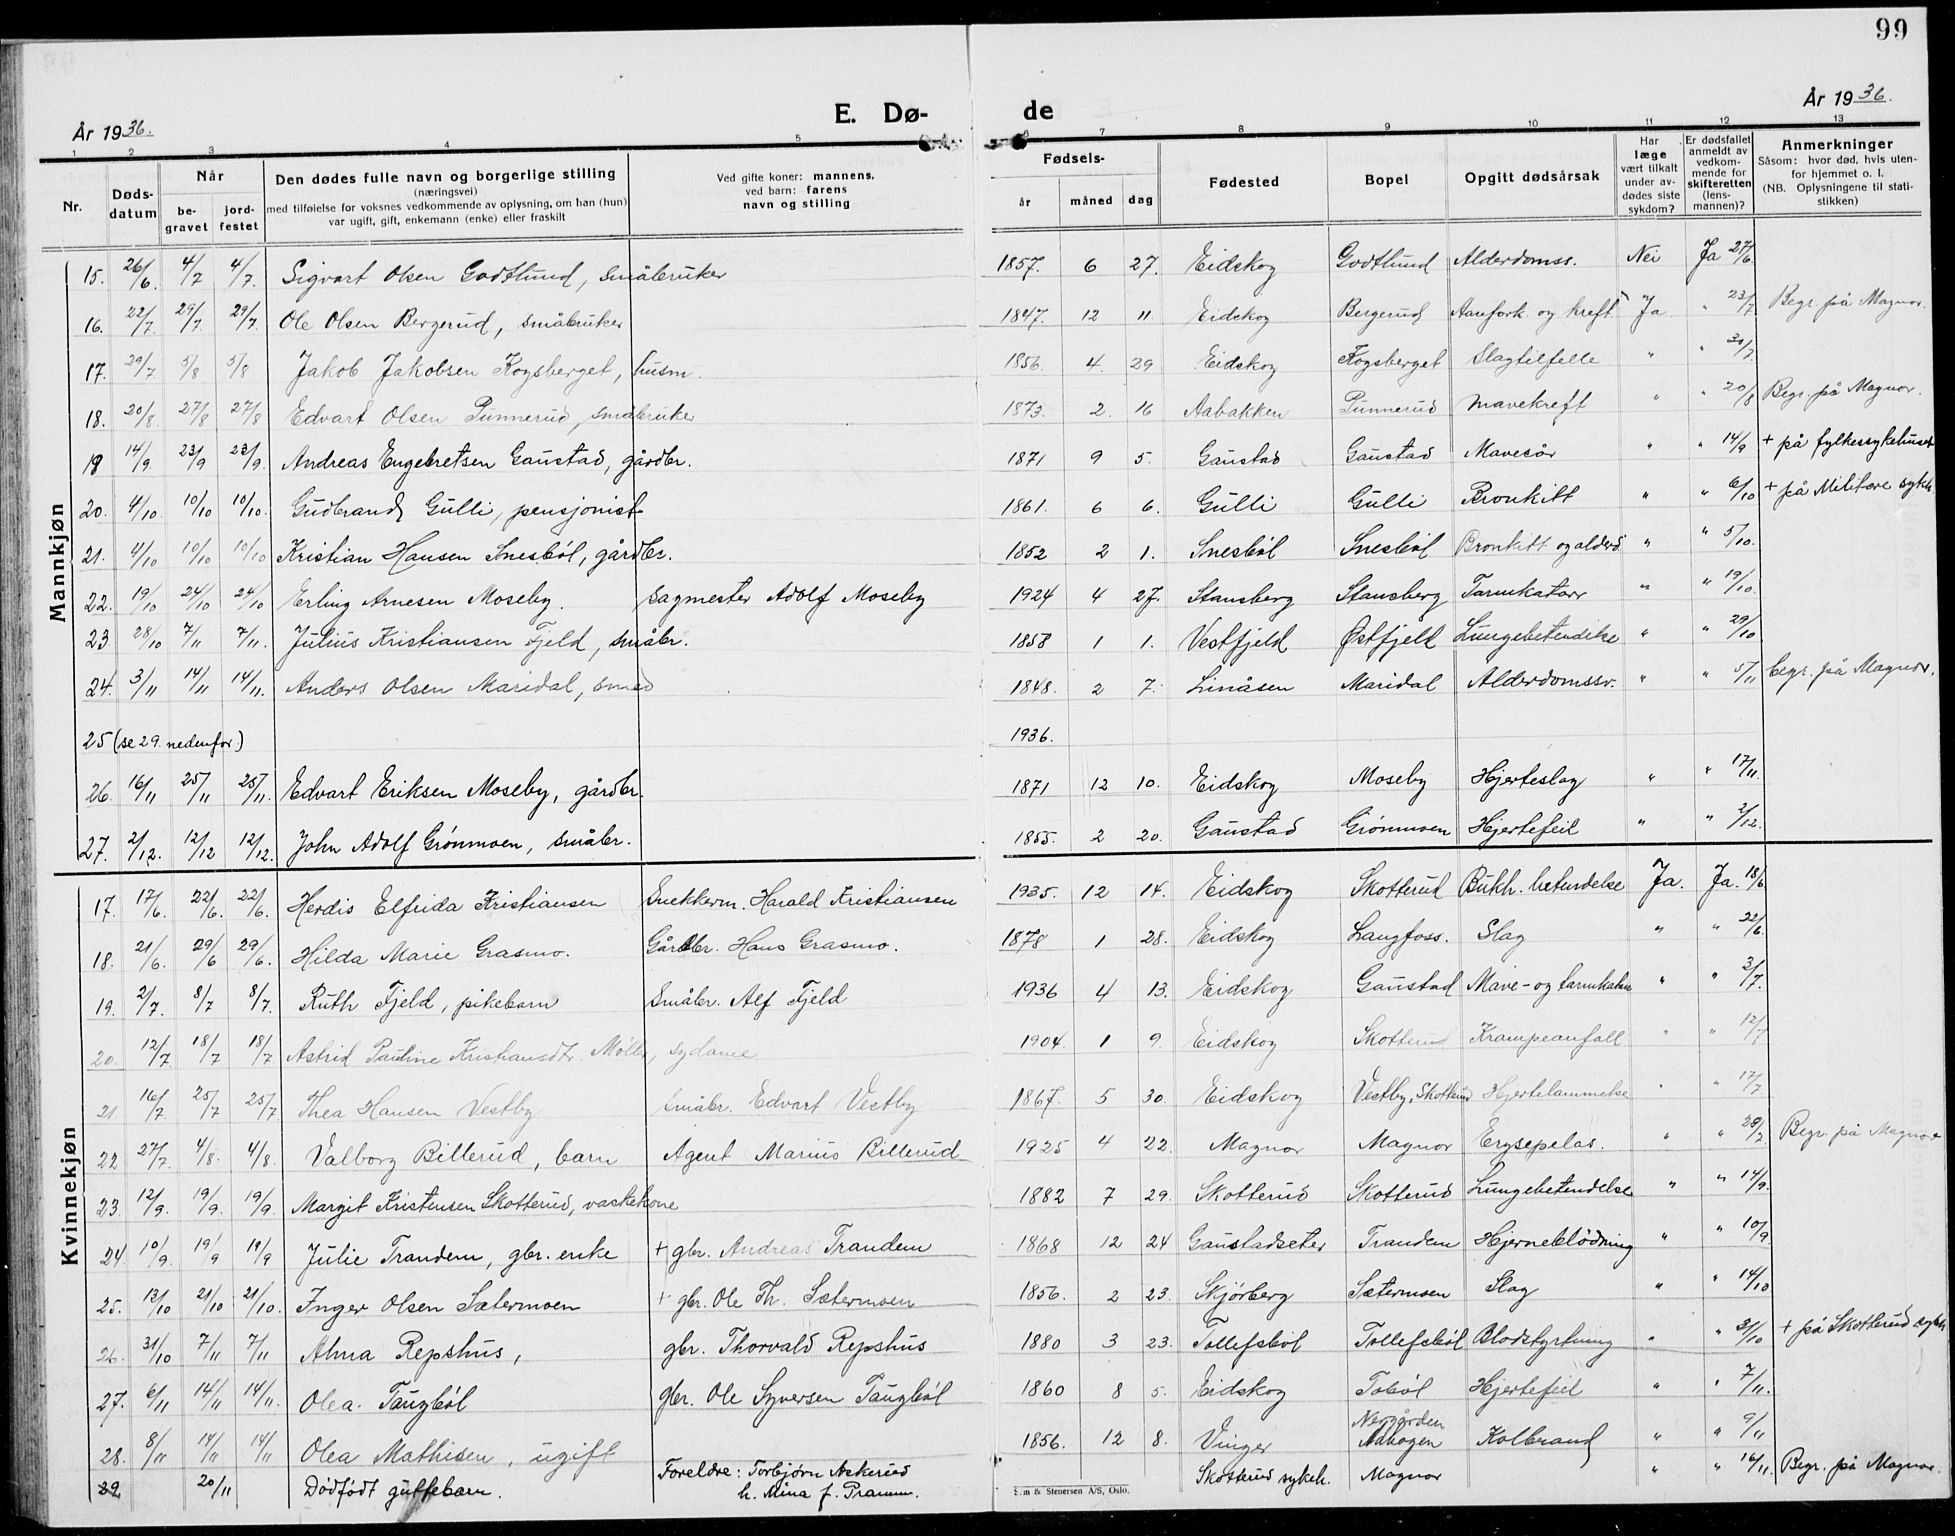 99
År 1936.
E. Dø-
de
År 1936.
1 2 3 4 5 6 7 8 9 10 11 12 13
Nr.
Døds-
datum
Når
be-
gravet
jord-
festet
Den dødes fulle navn og borgerlige stilling
(næringsvei)
med tilføielse for voksnes vedkommende av oplysning, om han (hun)
var ugift, gift, enkemann (enke) eller fraskilt
Ved gifte koner: mannens,
ved barn: farens
navn og stilling
Fødsels-
år måned dag
Fødested
Bopel
Opgitt dødsårsak
Har
læge
vært tilkalt
under av-
dødes siste
sykdom?
Er dødsfallet
anmeldt av
vedkom-
mende for
skifteretten
(lens-
mannen)?
Anmerkninger
Såsom: hvor død, hvis uten-
for hjemmet o. l.
(NB. Oplysningene til stati-
stikken)
Mannkjøn
15. 26/6. 4/7 4/7. Sigvart Olsen Godtlund, småbruker 1857. 6 27. Eidskog Godtlund Alderdomss. Nei Ja 27/6.
16. 22/7. 29/7. 29/7. Ole Olsen Bergerud, småbruker 1847. 12 11. Eidskog Bergerud og kreft Ja " 23/7. Begr. på Magnor.
17. 29/7 5/8 5/8. Jakob Jakobsen Kogsberget, husm. 1856. 4. 29 Eidskog Kogsberget Slagtilfelle " " 30/7.
18. 20/8. 27/8 27/8 Edvart Olsen Punnerud, småbruker 1873. 2. 16 Aabakken Punnerud Mavekreft " " 20/8 Begr. på Magnor.
19 14/9. 23/9 23/9. Andreas Engebretsen Gaustad, gårdbr. 1871 9 5. Gaustad Gaustad Mavesår " " 14/9 + på fylkessykehuset
20. 4/10. 10/10 10/10. Gudbrand Gulli, pensjonist 1861. 6 6. Gulli Gulli Bronkitt " " 6/10 + på Militære sykeh.
21. 4/10 10/10 10/10 Kristian Hansen Snesbøl, gårdbr. 1852 2 1. Snesbøl Snesbøl Bronkitt og alderd. " " 5/10.
22. 19/10 24/10 24/10 Erling Arnesen Moseby. Sagmester Adolf Moseby 1924 4 27. Stansberg Stansberg Tarmkatarr " " 19/10.
23 28/10 7/11 7/11. Julius Kristiansen Fjeld, småbr. 1858 1 1. Vestfjeld Østfjeld Lungebetendelse " " 29/10
24. 3/11 14/11 14/11. Anders Olsen Maridal, smed 1848. 2 7. Linåsen Maridal Alderdomssv. " " 5/11 begr. på Magnor.
25 (se 29. nedenfor) 1936.
26. 16/11 25/11 25/11. Edvart Eriksen Moseby, gårdbr. 1871 12 10. Eidskog Moseby Hjerteslag " " 17/11.
27. 2/12. 12/12 12/12. John Adolf Grønmoen, småbr. 1855. 2 20. Gaustad Grønmoen Hjertefeil " " 2/12.
Kvinnekjøn
17. 17/6. 22/6. 22/6. Herdis Elfrida Kristiansen Snekkerm. Harald Kristiansen 1935. 12 14. Eidskog Skotterud Bukh. betendelse Ja. Ja. 18/6
18. 21/6. 29/6 29/6. Hilda Marie Grasmo. Gårdbr. Hans Grasmo. 1878 1 28. Eidskog Langfoss. Slag " " 22/6.
19. 2/7. 8/7 8/7. Ruth Fjeld, pikebarn Småbr. Alf Fjeld 1936 4 13. Eidskog Gaustad Mave- og tarmkatarr " " 3/7.
20. 12/7. 18/7 18/7 Astrid Pauline Kristiansdtr. Møller, sydame 1904. 1 9. Eidskog Skotterud Krampeanfall " " 12/7
21 16/7. 25/7 25/7. Thea Hansen Vestby småbr. Edvart Vestby 1867. 5 30. Eidskog Vestby, Skotterud Hjertelammelse " " 17/7
22 27/7. 4/8. 4/8. Valborg Billerud, barn Agent Marius Billerud 1925 4 22. Magnor Magnor Erysepelas. " " 28/7. Begr. på Magnor
23. 12/9. 19/9. 19/9. Margit Kristensen Skotterud, vaskekone 1882 7 29. Skotterud Skotterud Lungebetendelse " " 14/9.
24. 10/9. 19/9 19/9 Julie Trandem, gbr. enke + gbr. Andreas Trandem 1868 12 24 Gaustadseter Trandem Hjerneblödning " " 10/9.
25. 13/10 21/10 21/10. Inger Olsen Sætermoen + gbr. Ole Th. Sætermoen 1856. 2 23. Skjørberg Sætermoen Slag " " 14/10
26. 31/10 7/11 7/11 Alma Repshus, gbr. Thorvald Repshus 1880 3 23. Tollefsbøl Tollefsbøl Blodstyrtning " " 31/10 + på Skotterud sykeh.
27. 6/11 14/11 14/11. Olea. Taugbøl gbr. Ole Syversen Taugbøl 1860 8 5. Eidskog Tobøl Hjertefeil " " 7/11.
28. 8/11 14/11 14/11 Olea Mathisen, ugift 1856. 12 8. Vinger Nergården Aabogen Kolbrand " " 9/11
29. 20/11 Dødfødt guttebarn. Foreldre: Torbjørn Askerud
h. Mina f. Skotterud sykeh. Magnor " " 16/11. Begr. på Magnor.
& Stenersen A/S, Oslo.